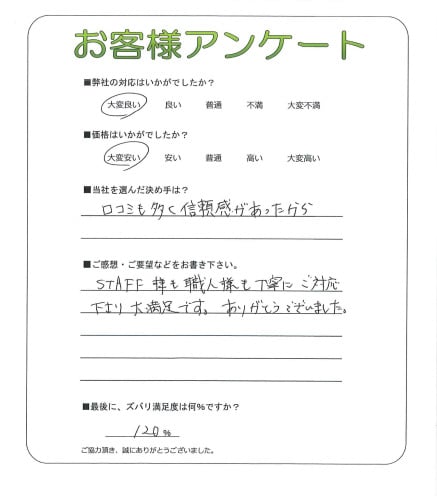 お客様アンケート
■弊社の対応はいかがでしたか？
大変良い 良い 普通 不満 大変不満
■価格はいかがでしたか？
大変安い 安い 普通 高い 大変高い
■当社を選んだ決め手は？
口コミも多く信頼感があったから
■ご感想・ご要望などをお書き下さい。
STAFF様も職人様も丁寧にご対応
下さり大満足です。ありがとうございました。
■最後に、ズバリ満足度は何％ですか？
120％
ご協力頂き、誠にありがとうございました。